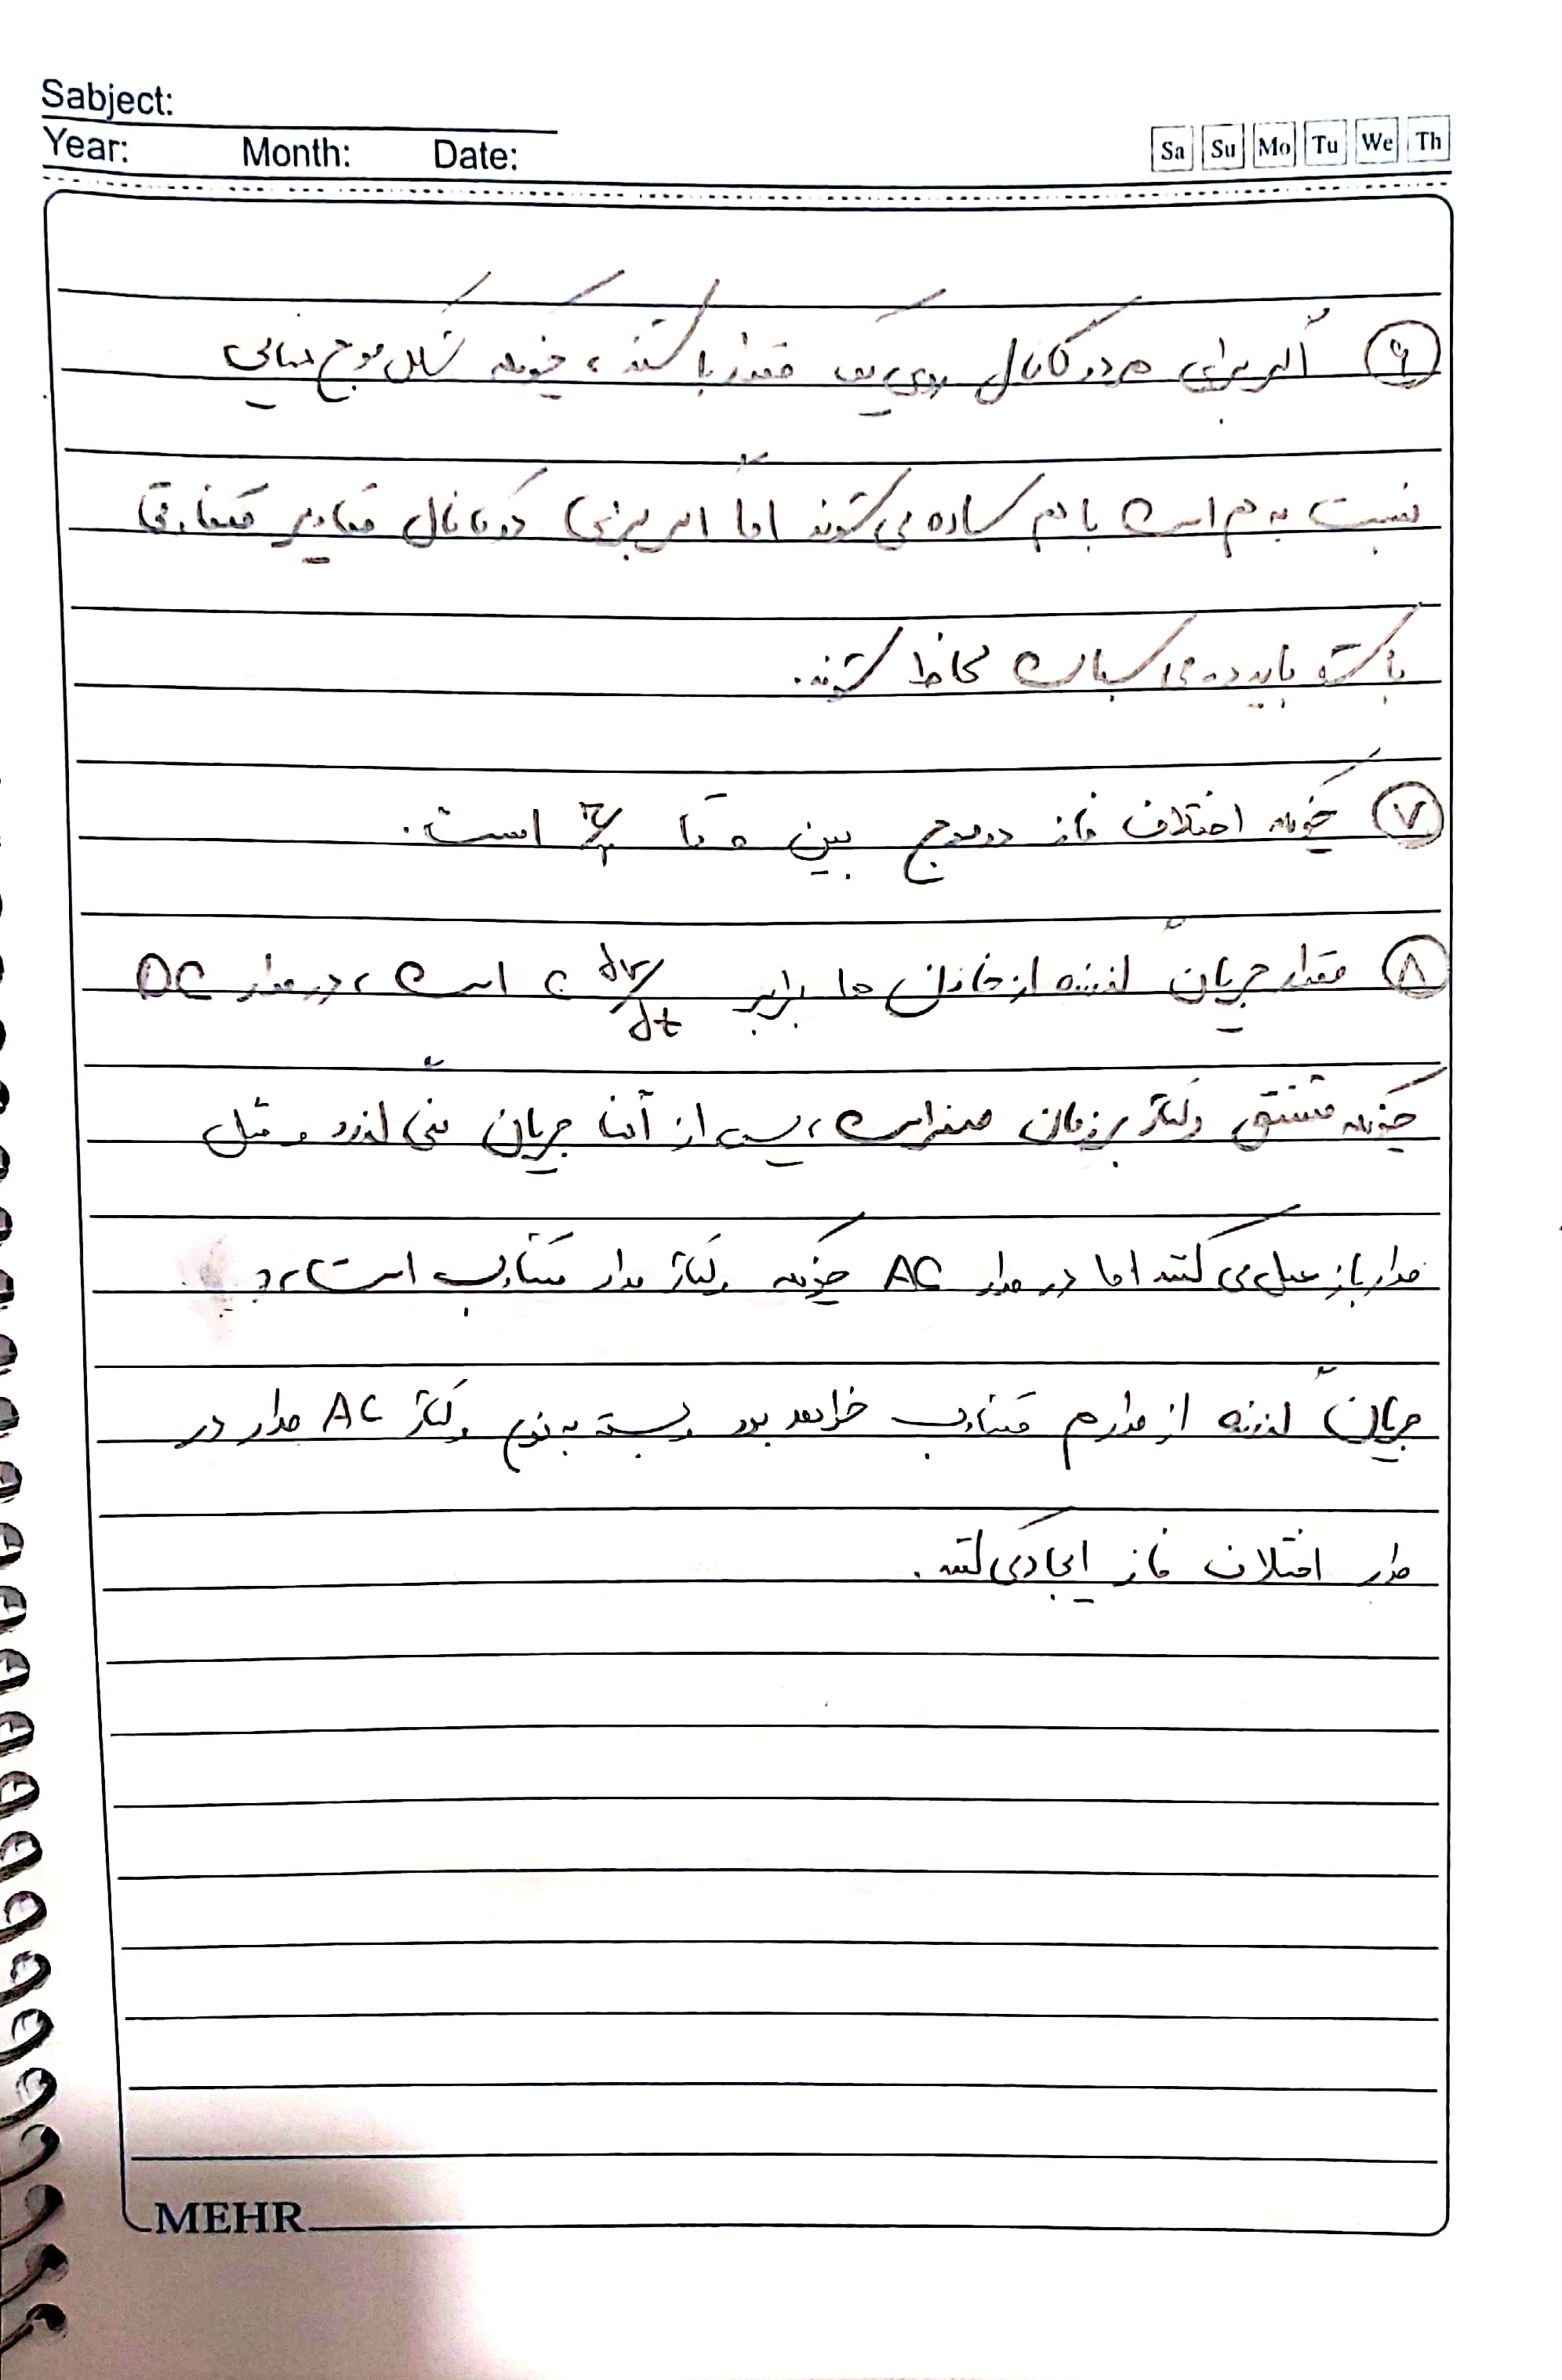 Sabject:
Year: Month: Date:
Sa Su Mo Tu We Th
۶ اگر برای هر دو کانال روی یک مقدار باشند، چونکه شکل موج نهایی
نسبت به هم است با هم ساده می‌شوند اما اگر برای دو کانال مقادیر متفاوتی
باشد باید در محاسبات لحاظ شوند.
۷ چونکه اختلاف فاز دو موج بین ۰ تا π/۲ است.
۸ مقدار جریان گذرنده از خازن ها برابر c dv/dt است، در مدار DC
چونکه مشتق ولتاژ بر زمان صفر است، پس از آنها جریان نمی گذرد و مثل
مدار باز عمل می کنند اما در مدار AC چونکه ولتاژ مدار متناوب است، و
جریان گذرنده از مدار هم متناوب خواهد بود و بسته به نوع ولتاژ AC مدار در
مدار اختلاف فاز ایجاد می کنند.
MEHR